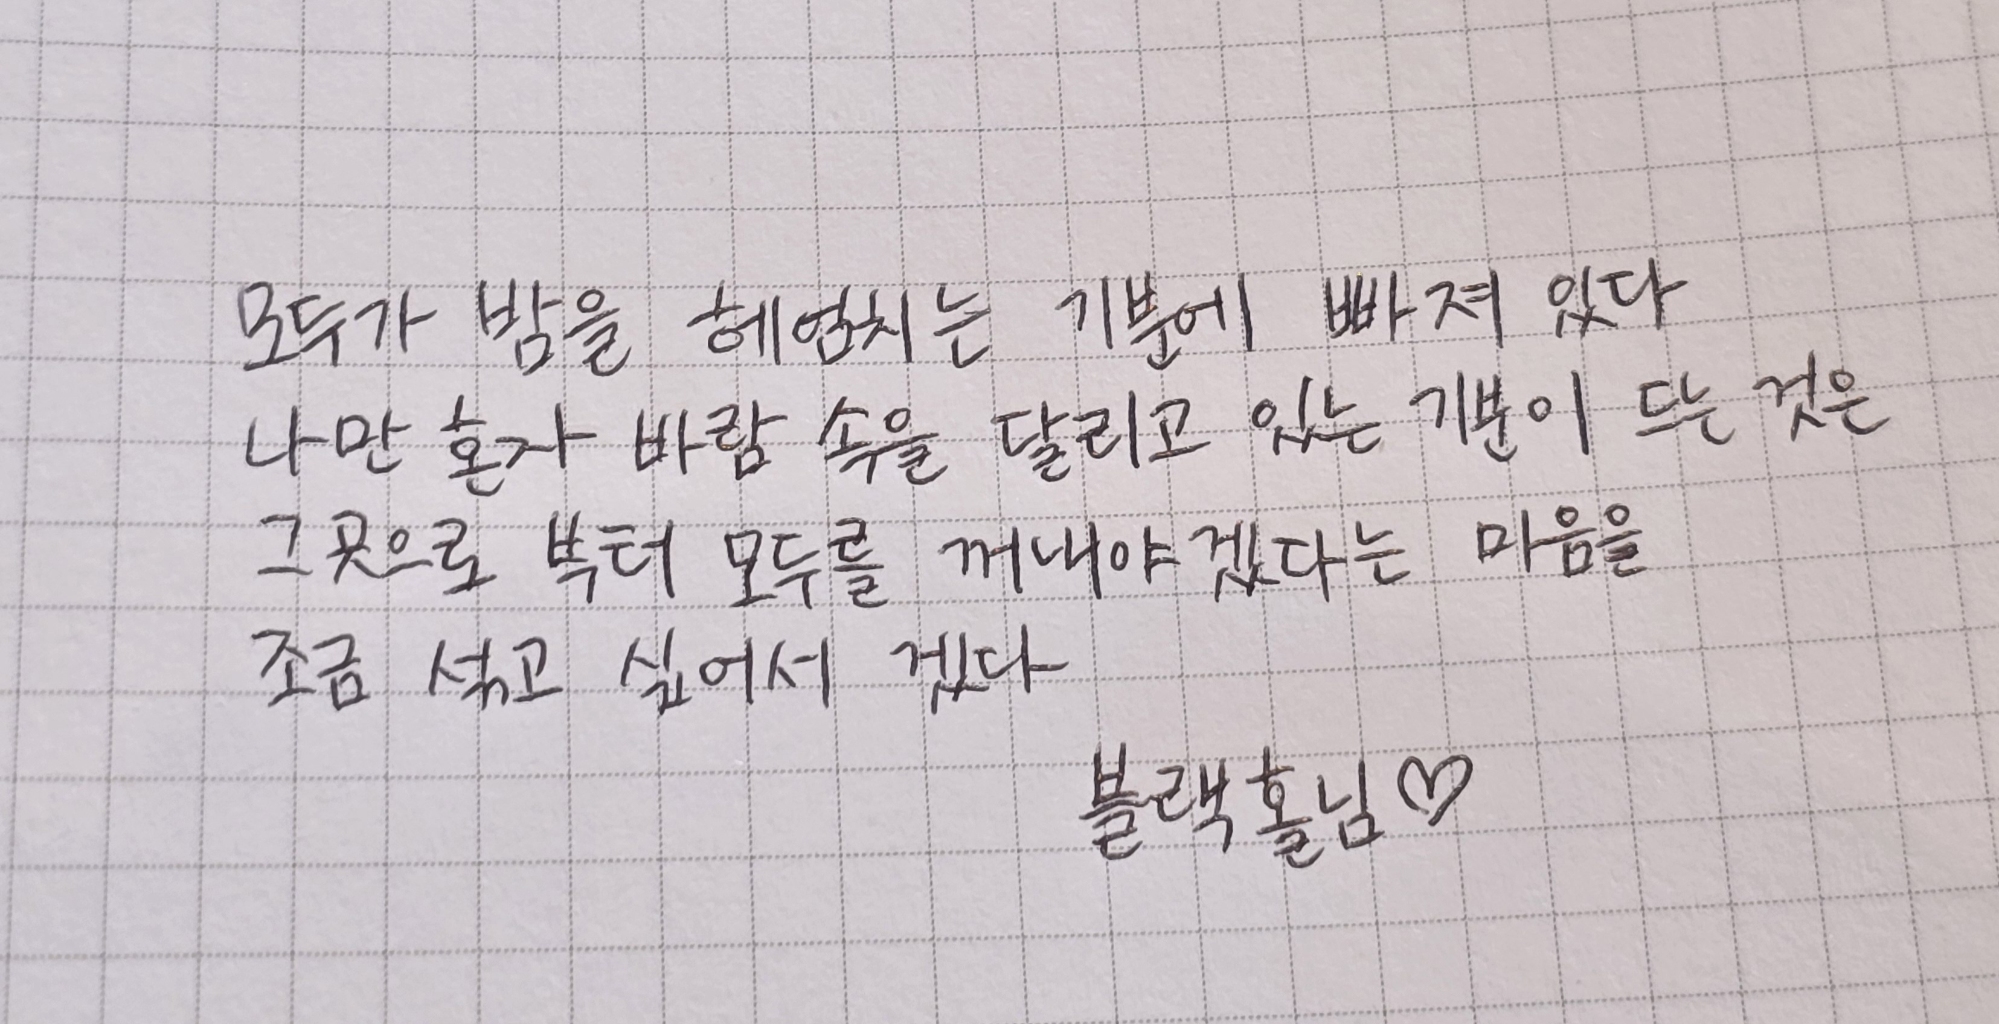 모두가 밤을 헤엄치는 기분에 빠져 있다
나만 혼자 바람 속을 달리고 있는 기분이 드는 것은
그곳으로 부터 모두를 꺼내야겠다는 마음을
조금 섞고 싶어서 겠다
블랙홀님♡